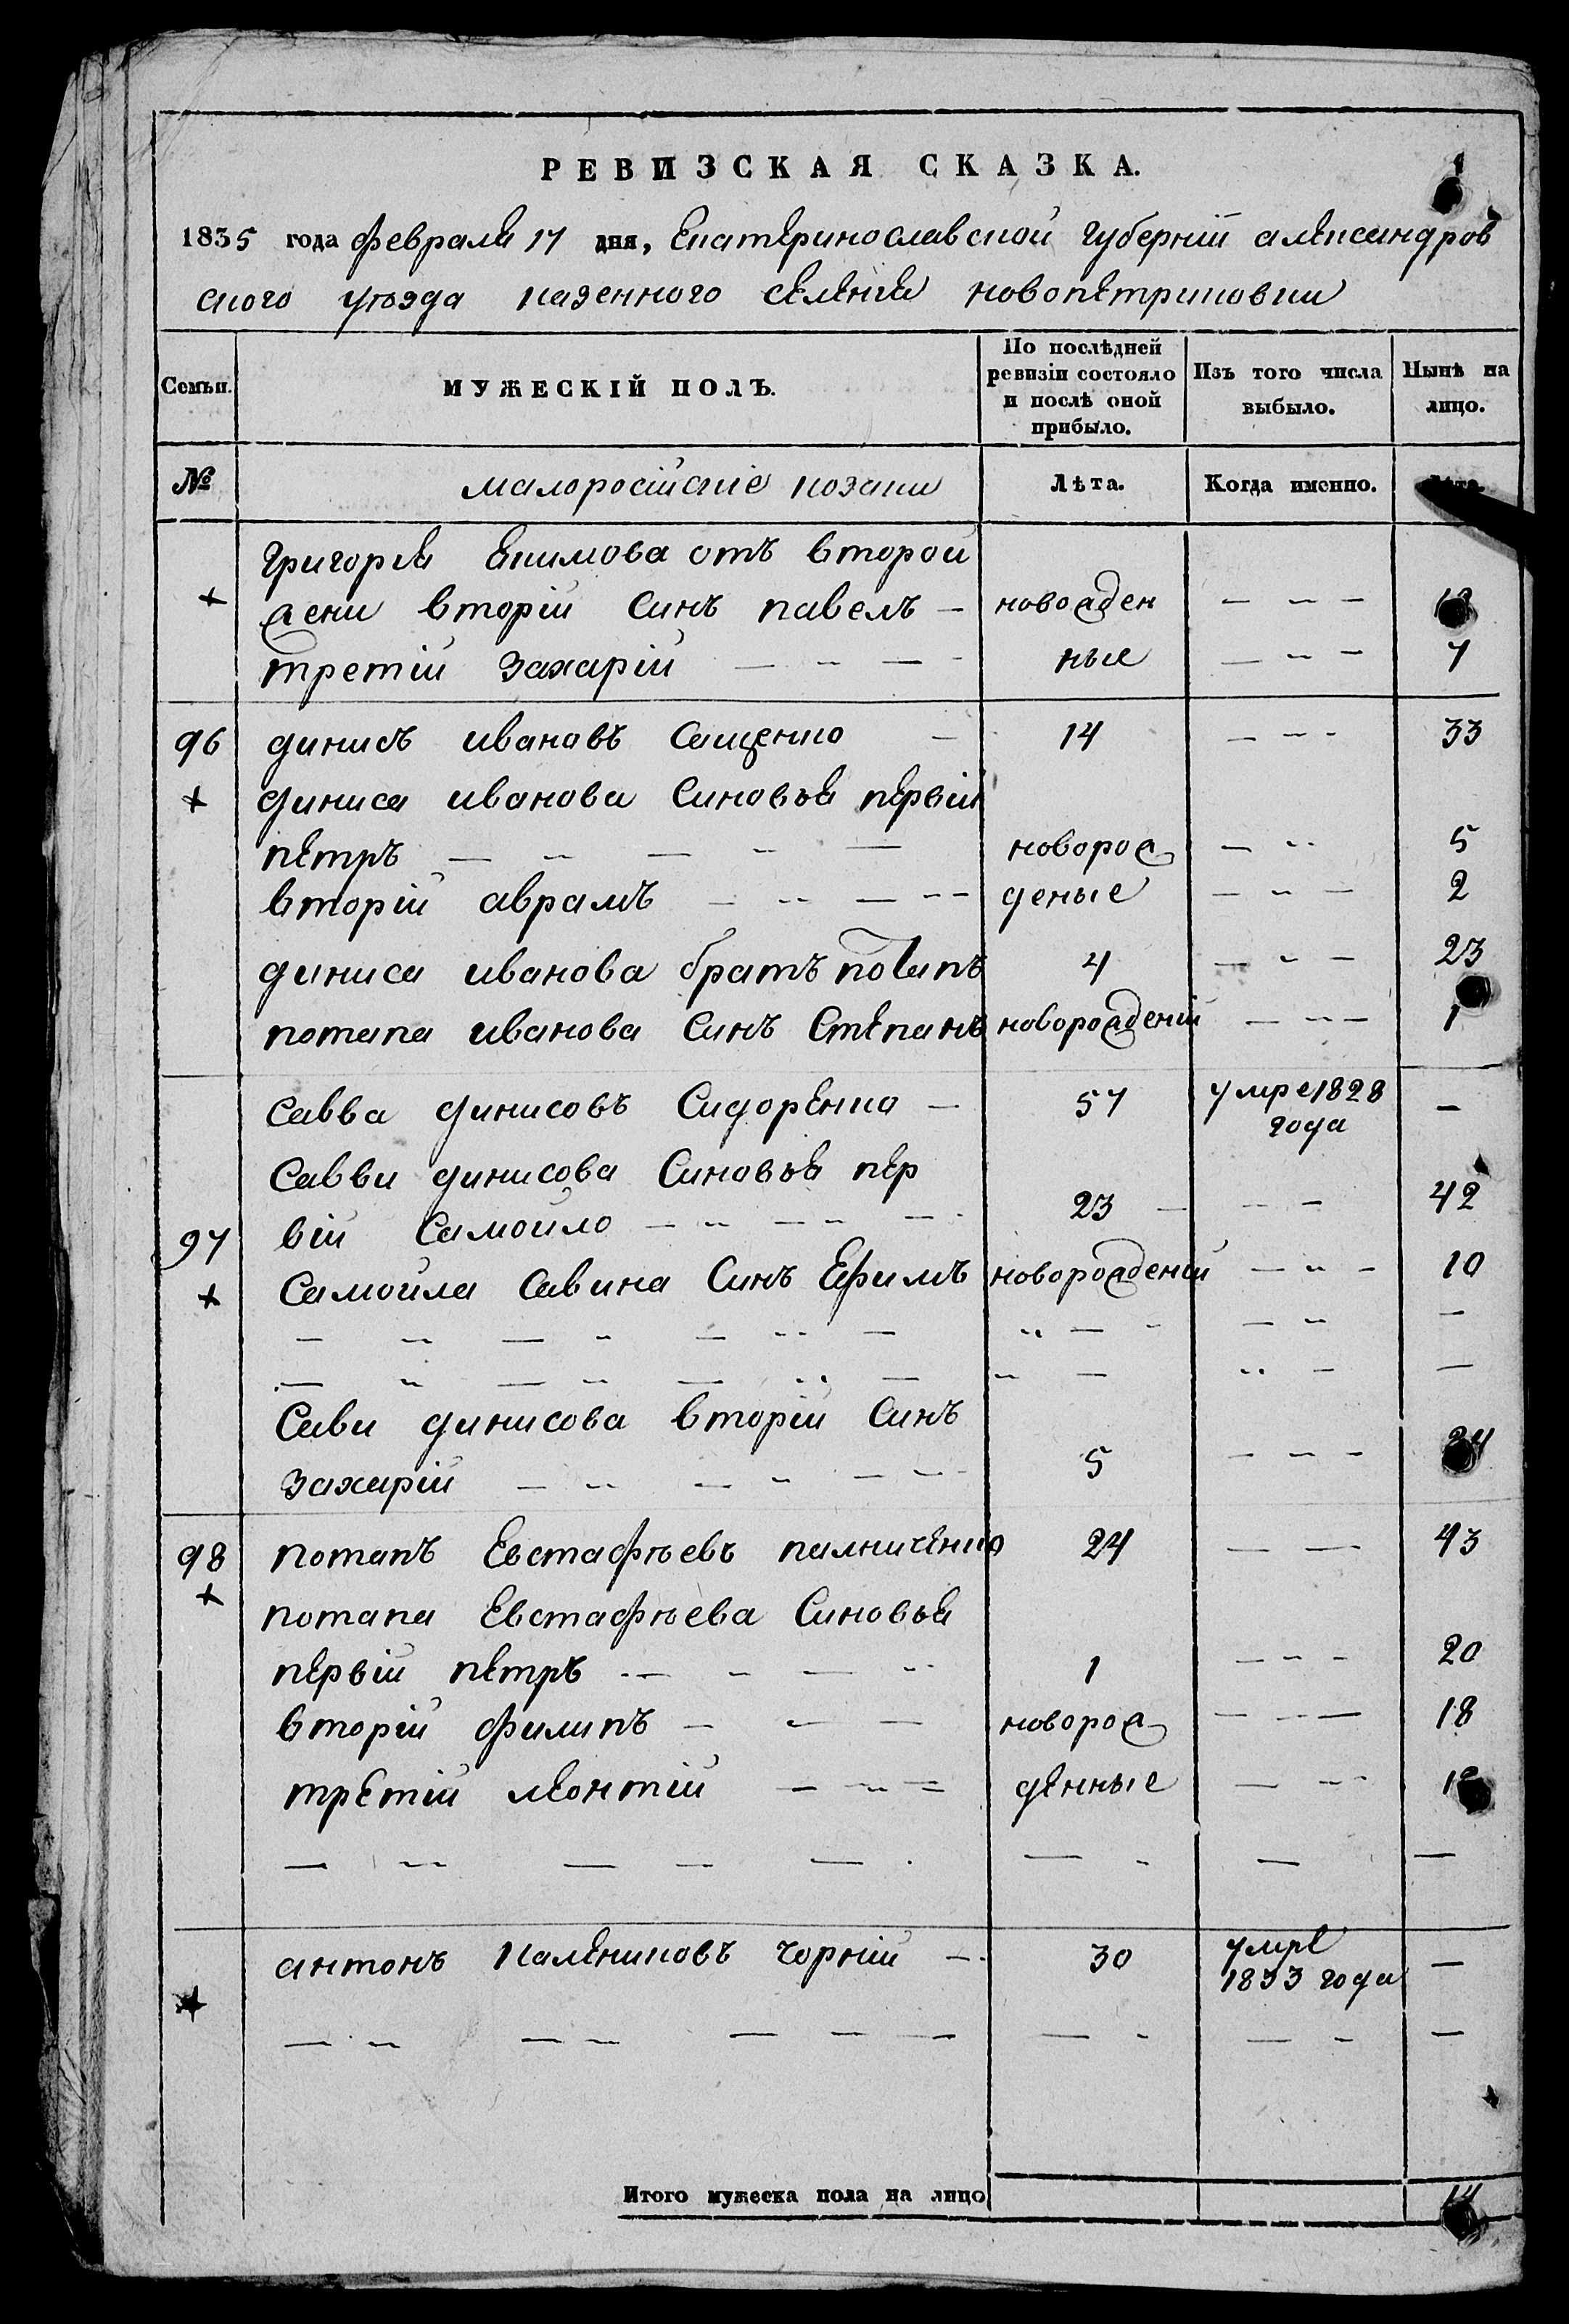 РЕВИЗСКАЯ СКАЗКА.
1835 года февраля 17 дня, Екатеринославской губернїи александров
ского уѣзда казенного селенїя новопетриковки
Семьи. МУЖЕСКІЙ ПОЛЪ. По послѣдней ревизіи состояло и послѣ оной прибыло. Изъ того числа выбыло. Нынѣ на лицо.
№ малоросійскіе козаки Лѣта. Когда именно. Лѣта.
григорія Екимова отъ второй
жени вторій синъ павелъ — новожден — — —
третій захарій — — — ные — — — 7
96 динисъ ивановъ Сащенко — 14 — — — 33
диниса иванова Синовья первій
петръ — — — — — новорож — — 5
вторій аврамъ — — — — деные — — — 2
диниса иванова братъ потапъ 4 — — — 23
потапа иванова Синъ Степанъ новорожденій — — — 1
Савва динисовъ Сидоренко — 57 умре 1828 —
года
Савви динисова Синовья пер
97 вій Самойло — — — — — 23 — — — 42
Самойла Савина Синъ Ефимъ новорожденій — — — 10
Сави динисова вторій Синъ
захарій — — — — — — 5 — — — 24
98 потапъ Евстафѣевъ палниченко 24 — — 43
потапа Евстафѣева Синовья
первій петръ — — — — 1 — — — 20
вторій филипъ — — — новорож — — — 18
третій леонтій — — — денные — — —
антонъ Калениковъ чорній — 30 умре —
1833 года
Итого мужеска пола на лицо 14